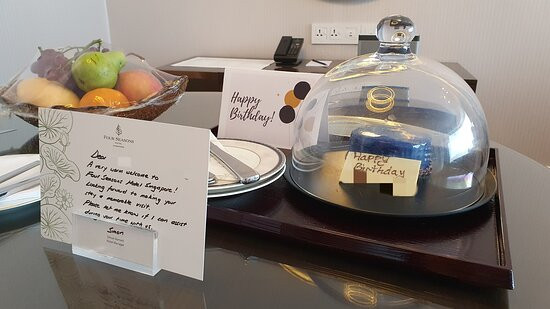 FOUR SEASONS
HOTEL
Dear
A very warm welcome to
Four Seasons Hotel Singapore!
Looking forward to making your
stay a memorable visit.
Please let me know if I can assist
during your time with us.
Happy
Birthday!
Happy
Birthday